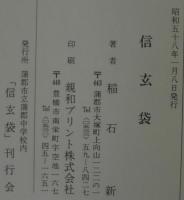 昭和五十八年一月八日発行
信玄袋
著者 稲石 新
〒443 蒲郡市大塚町上向山二-二〇-一
Tel
印刷 親和プリント株式会社
〒440 豊橋市南栄町字空池一六七
Tel (〇五三二) 四五-一六五一
発行所 蒲郡市立蒲郡中学校内
「信玄袋」刊行会